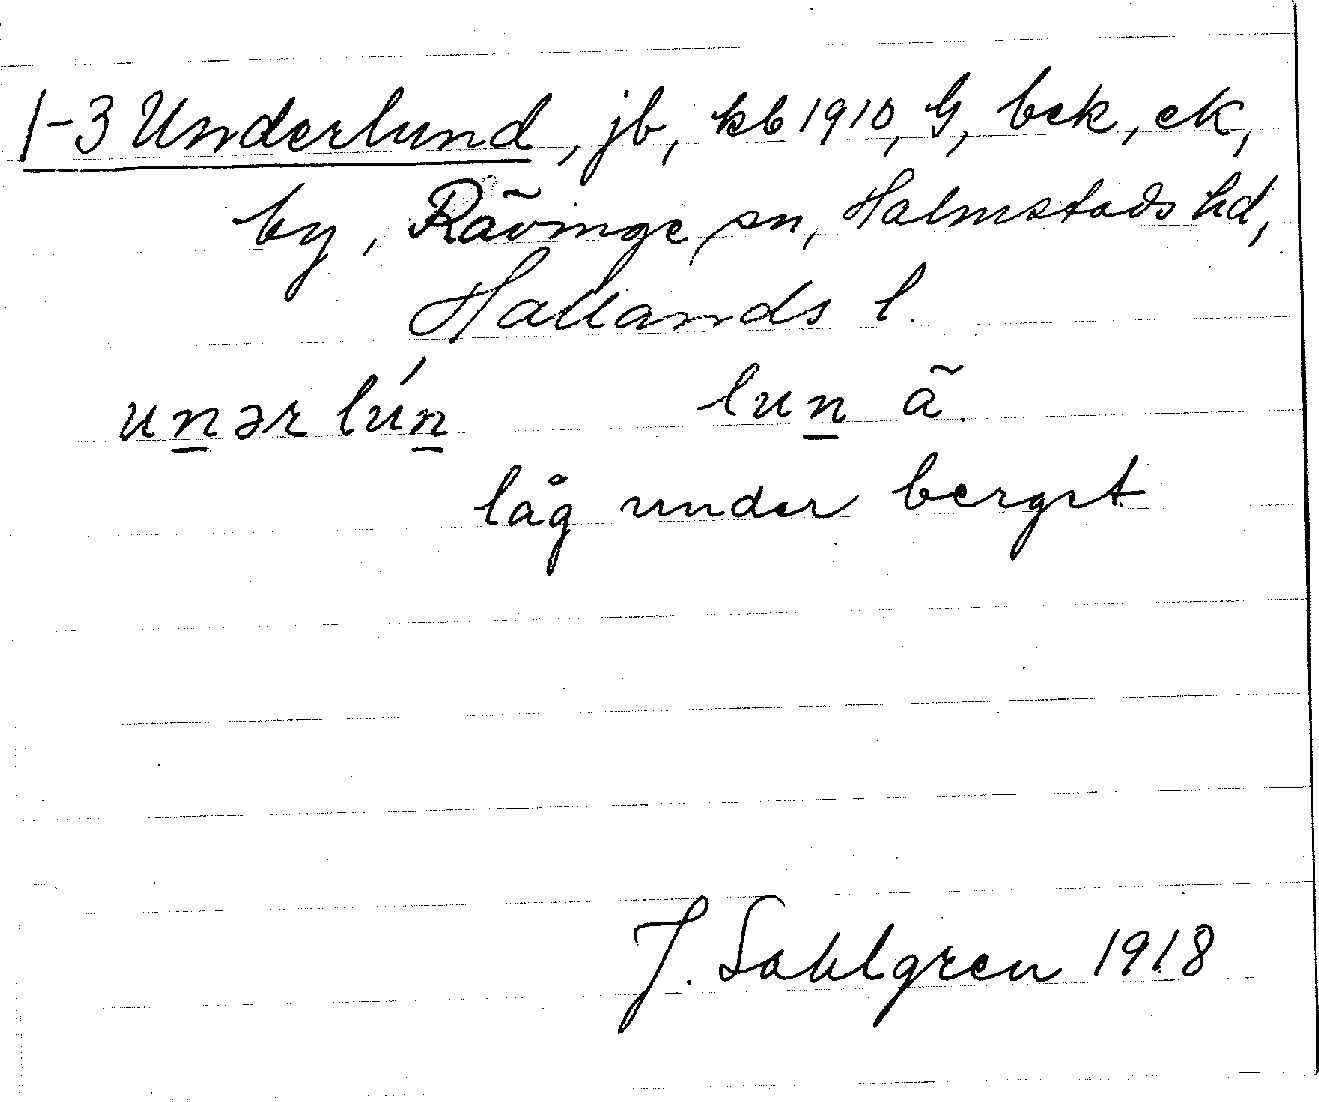 1-3 Underlund, jb, kb 1910, G, bck, ck,
by, Rävinge sn, Halmstads hd,
Hallands l.
unər lún lun ã
låg under berget
J. Sahlgren 1918